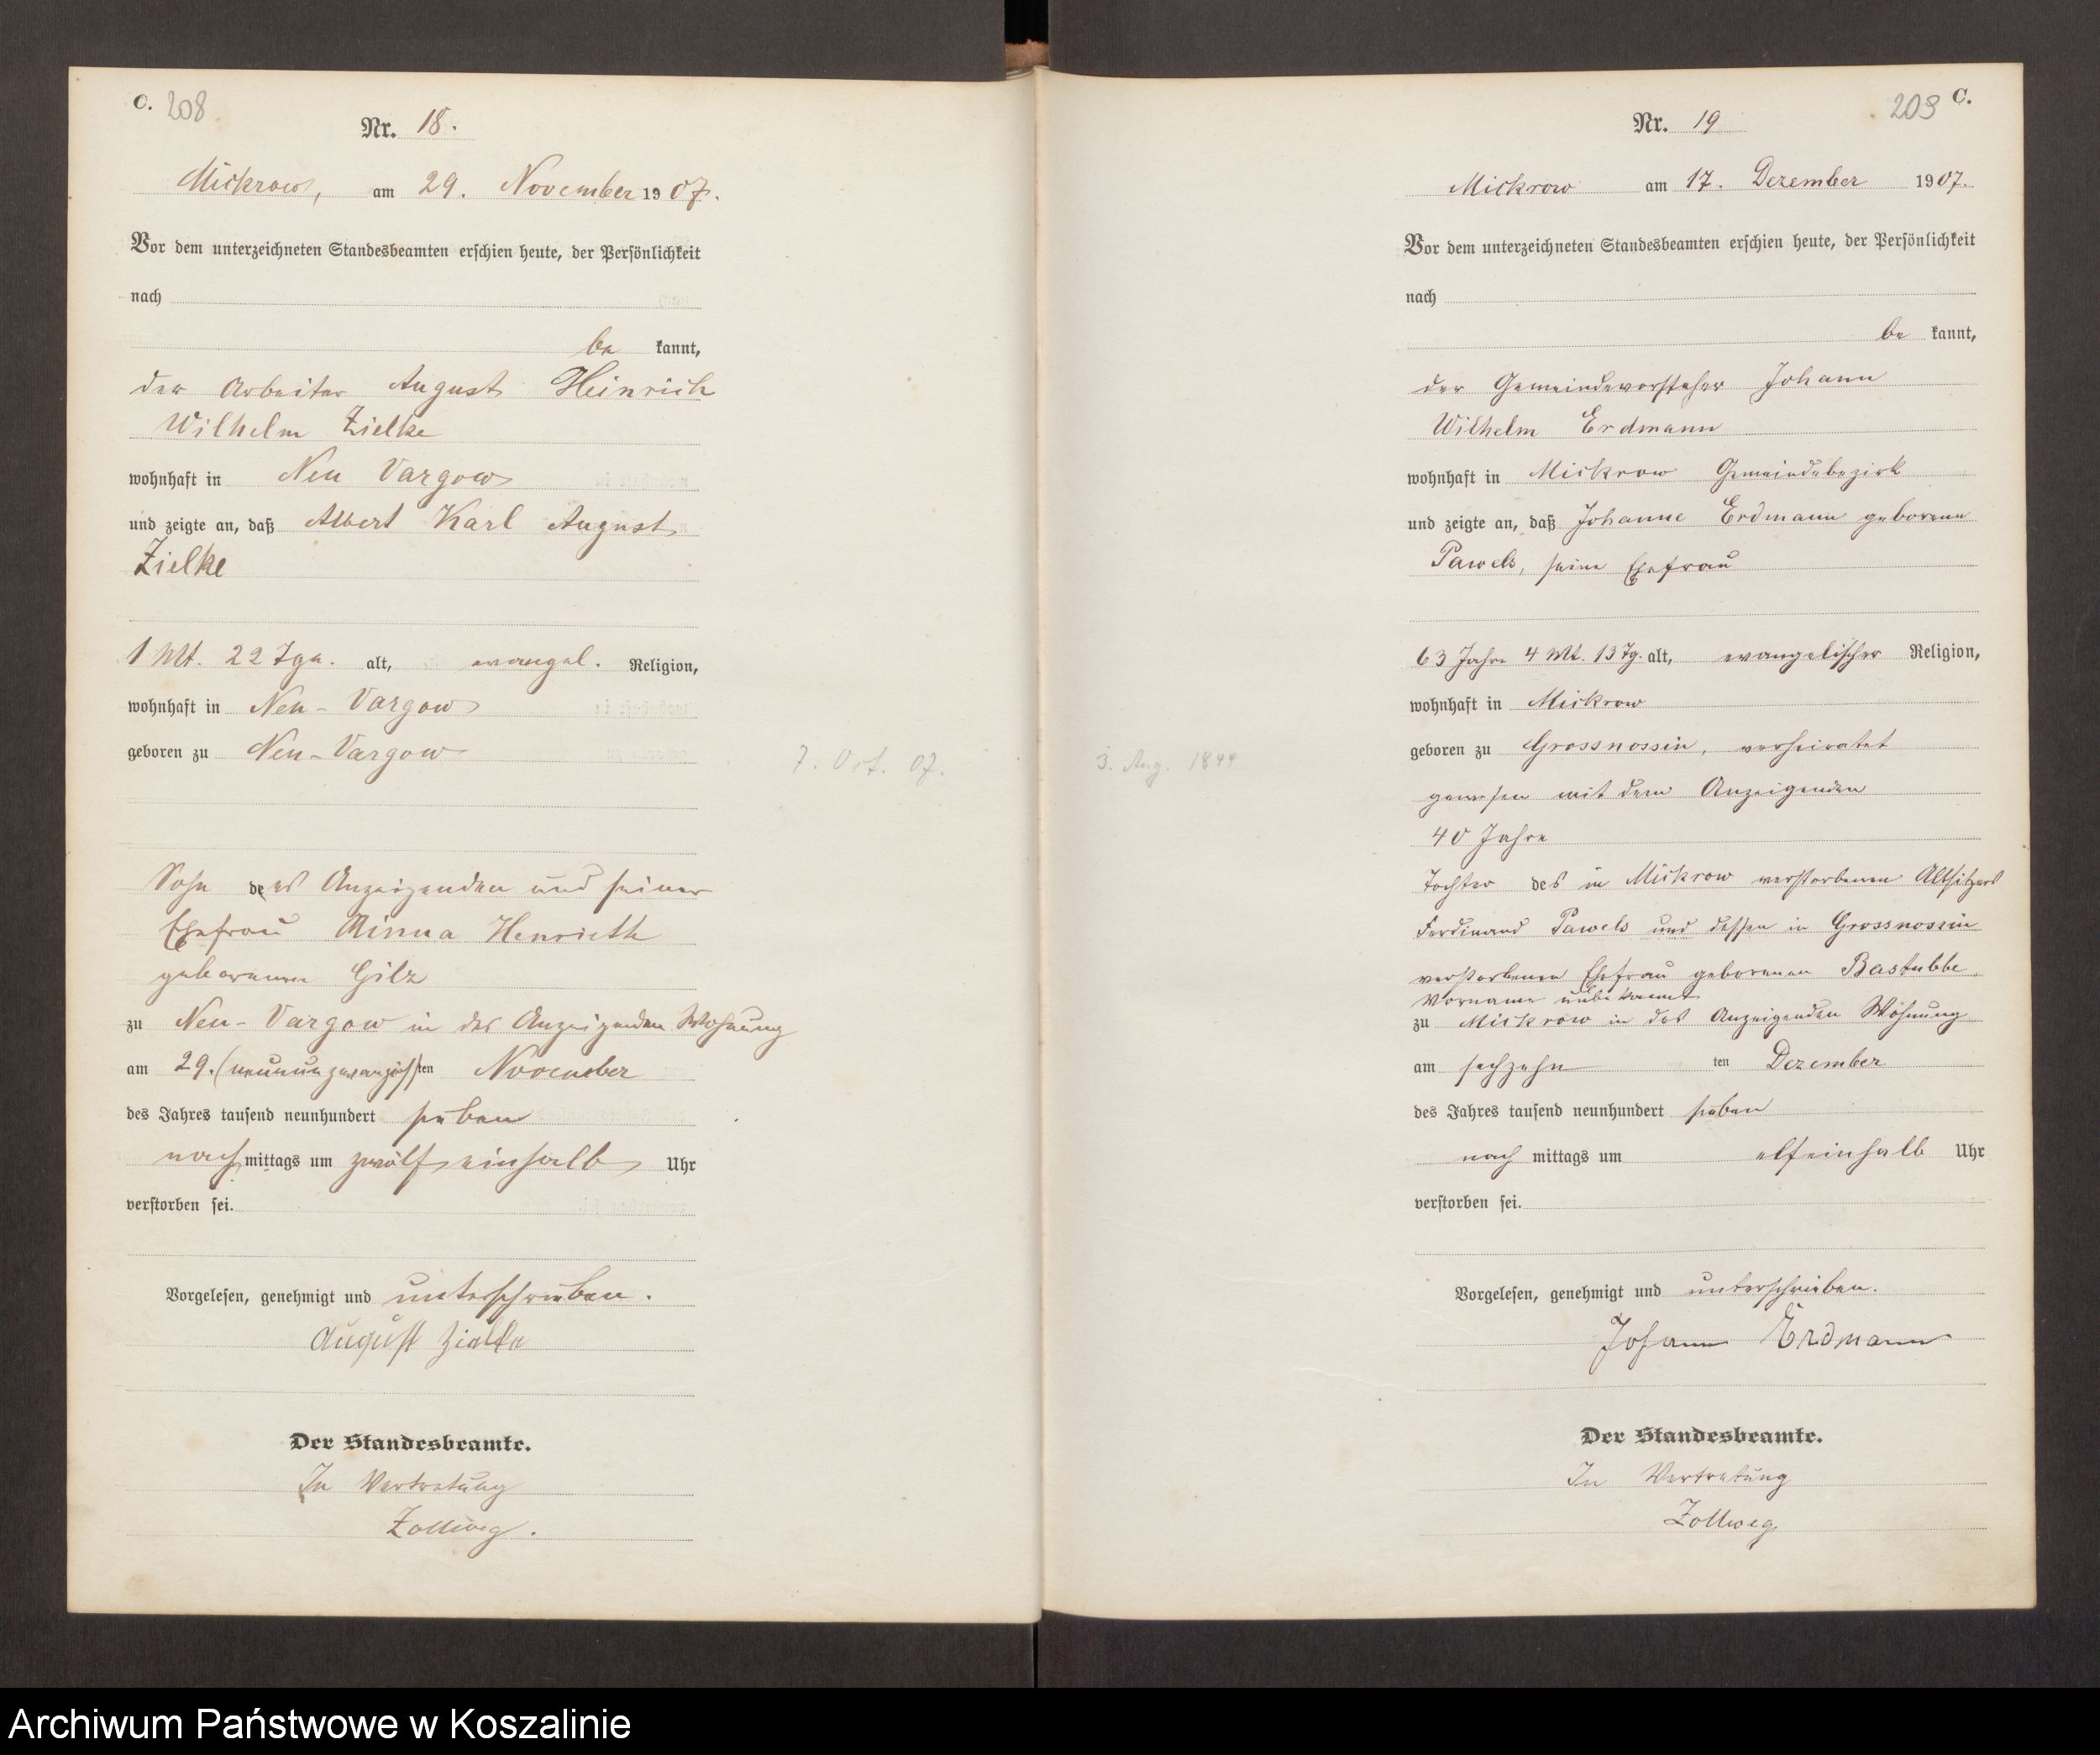 C. 208
Nr. 18.
Mickrow, am 29. November 1907.
Vor dem unterzeichneten Standesbeamten erschien heute, der Persönlichkeit
nach
be kannt,
der Arbeiter August Heinrich
Wilhelm Zielke
wohnhaft in Neu Vargow
und zeigte an, daß Albert Karl August
Zielke
1 Mt. 22 Tge. alt, evangel. Religion,
wohnhaft in Neu-Vargow
geboren zu Neu-Vargow
7. Oct. 07.
Sohn des Anzeigenden und seiner
Ehefrau Minna Henrieth
geborenen Gilz
zu Neu-Vargow in des Anzeigenden Wohnung
am 29. (neunundzwanzigsten November
des Jahres tausend neunhundert sieben
nach mittags um zwölfeinhalb Uhr
verstorben sei.
Vorgelesen, genehmigt und unterschrieben.
August Zielke
Der Standesbeamte.
In Vertretung
Zollweg.
203 C.
Nr. 19
Mickrow am 17. Dezember 1907.
Vor dem unterzeichneten Standesbeamten erschien heute, der Persönlichkeit
nach
be kannt,
der Gemeindevorsteher Johann
Wilhelm Erdmann
wohnhaft in Mickrow Gemeindebezirk
und zeigte an, daß Johanne Erdmann geborene
Pawels, seine Ehefrau
63 Jahre 4 Mt. 13 Tg. alt, evangelischer Religion,
wohnhaft in Mickrow
geboren zu Grossnossin, verheiratet
3. Aug. 1844
gewesen mit dem Anzeigenden
40 Jahre
Tochter des in Mickrow verstorbenen Altsitzers
Ferdinand Pawels und dessen in Grossnossin
verstorbenen Ehefrau geborenen Bastubbe.
Vorname unbekannt
zu Mickrow in des Anzeigenden Wohnung
am sechzehn ten Dezember
des Jahres tausend neunhundert sieben
nach mittags um elfeinhalb Uhr
verstorben sei.
Vorgelesen, genehmigt und unterschrieben.
Johann Erdmann
Der Standesbeamte.
In Vertretung
Zollweg
Archiwum Państwowe w Koszalinie